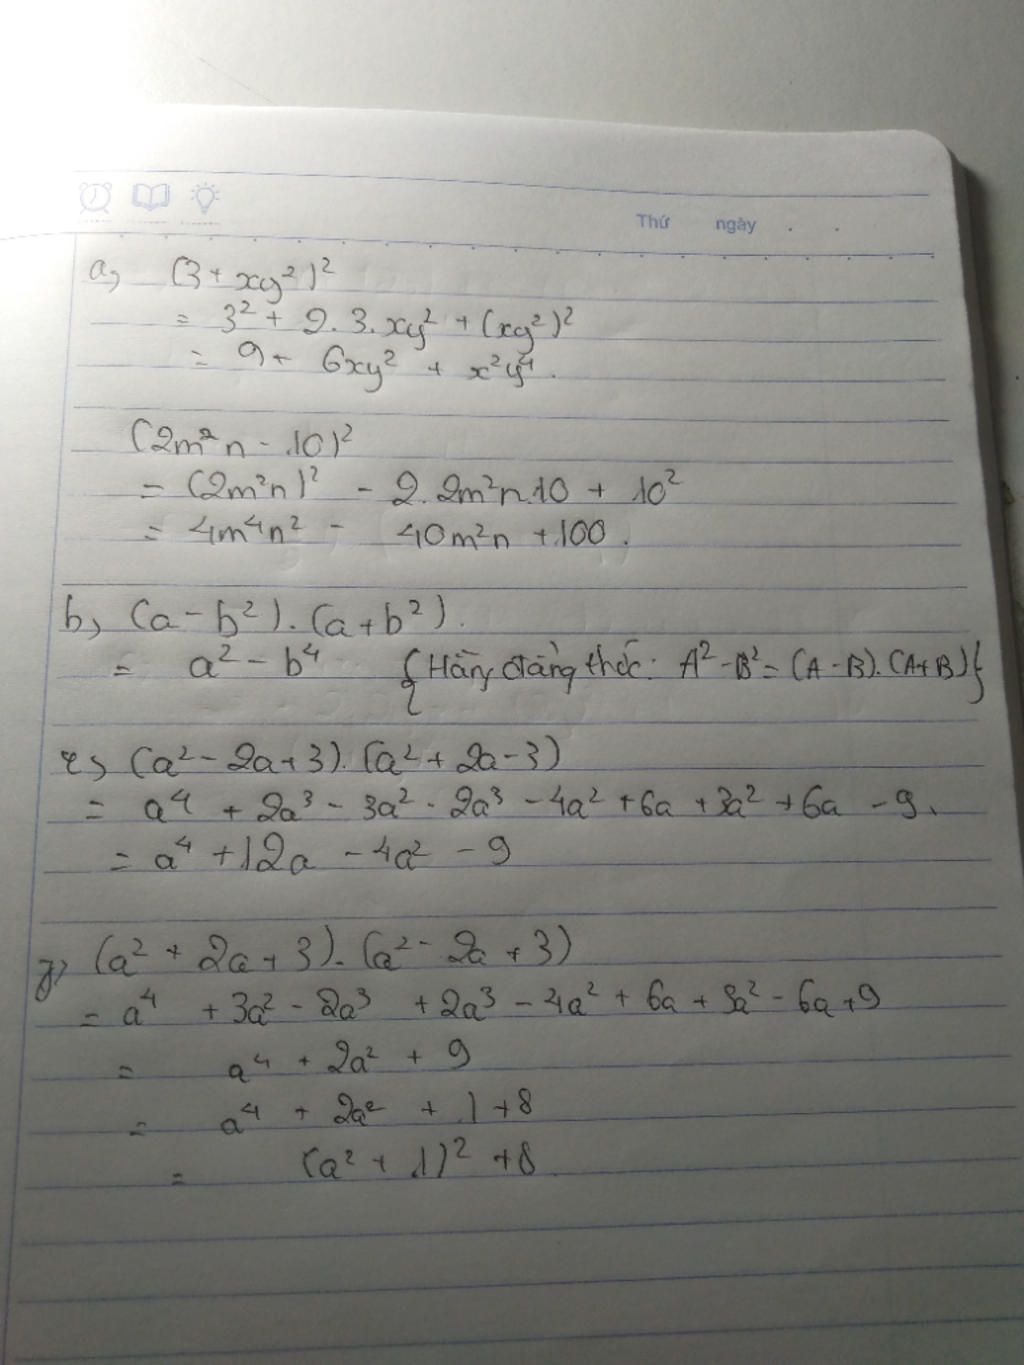 Thứ ngày
a, (3 + xy²)²
= 3² + 2.3.xy² + (xy²)²
= 9 + 6xy² + x²y⁴.
(2m²n - 10)²
= (2m²n)² - 2.2m²n.10 + 10²
= 4m⁴n² - 40m²n + 100.
b, (a - b²).(a + b²).
= a² - b⁴ { Hằng đẳng thức: A² - B² = (A - B).(A + B) }
e, (a² - 2a + 3).(a² + 2a - 3)
= a⁴ + 2a³ - 3a² - 2a³ - 4a² + 6a + 3a² + 6a - 9.
= a⁴ + 12a - 4a² - 9
g, (a² + 2a + 3).(a² - 2a + 3)
= a⁴ + 3a² - 2a³ + 2a³ - 4a² + 6a + 3a² - 6a + 9
= a⁴ + 2a² + 9
= a⁴ + 2a² + 1 + 8
= (a² + 1)² + 8